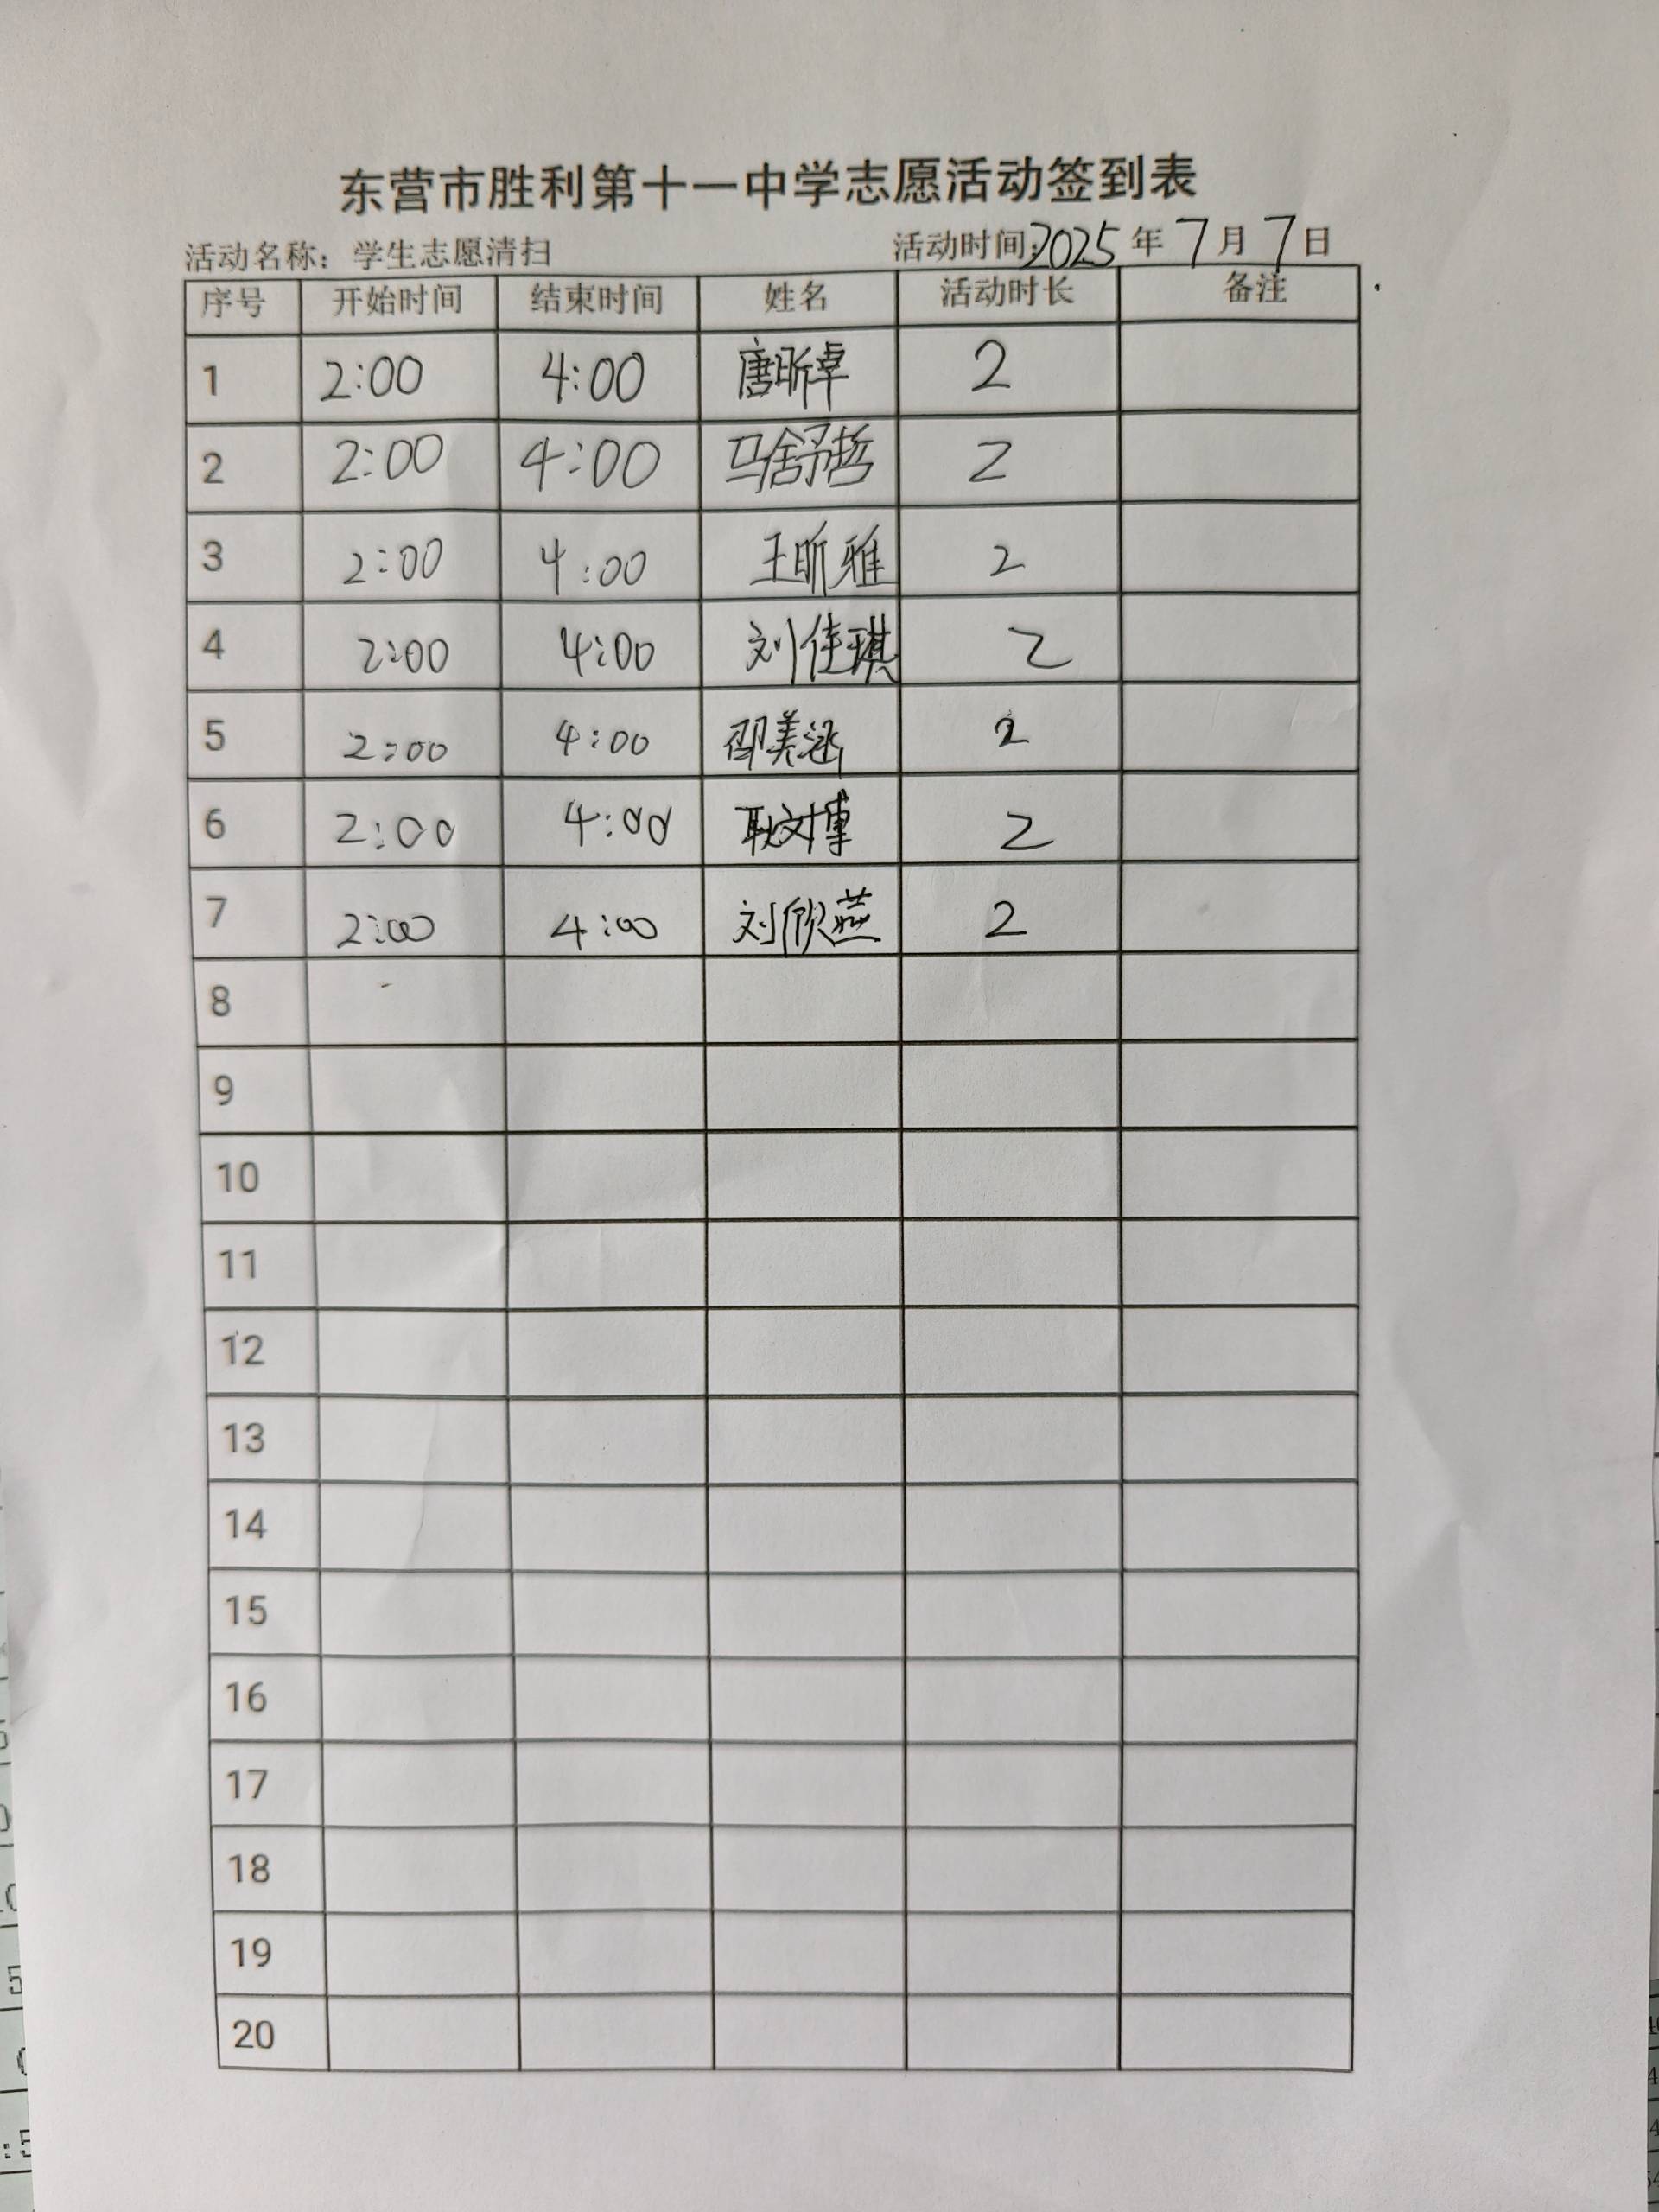 东营市胜利第十一中学志愿活动签到表
活动名称：学生志愿清扫 活动时间：2025年7月7日
序号 开始时间 结束时间 姓名 活动时长 备注
1 2:00 4:00 唐昕卓 2
2 2:00 4:00 马舒哲 2
3 2:00 4:00 王昕雅 2
4 2:00 4:00 刘佳琪 2
5 2:00 4:00 邵美涵 2
6 2:00 4:00 耿文博 2
7 2:00 4:00 刘欣燕 2
8
9
10
11
12
13
14
15
16
17
18
19
20